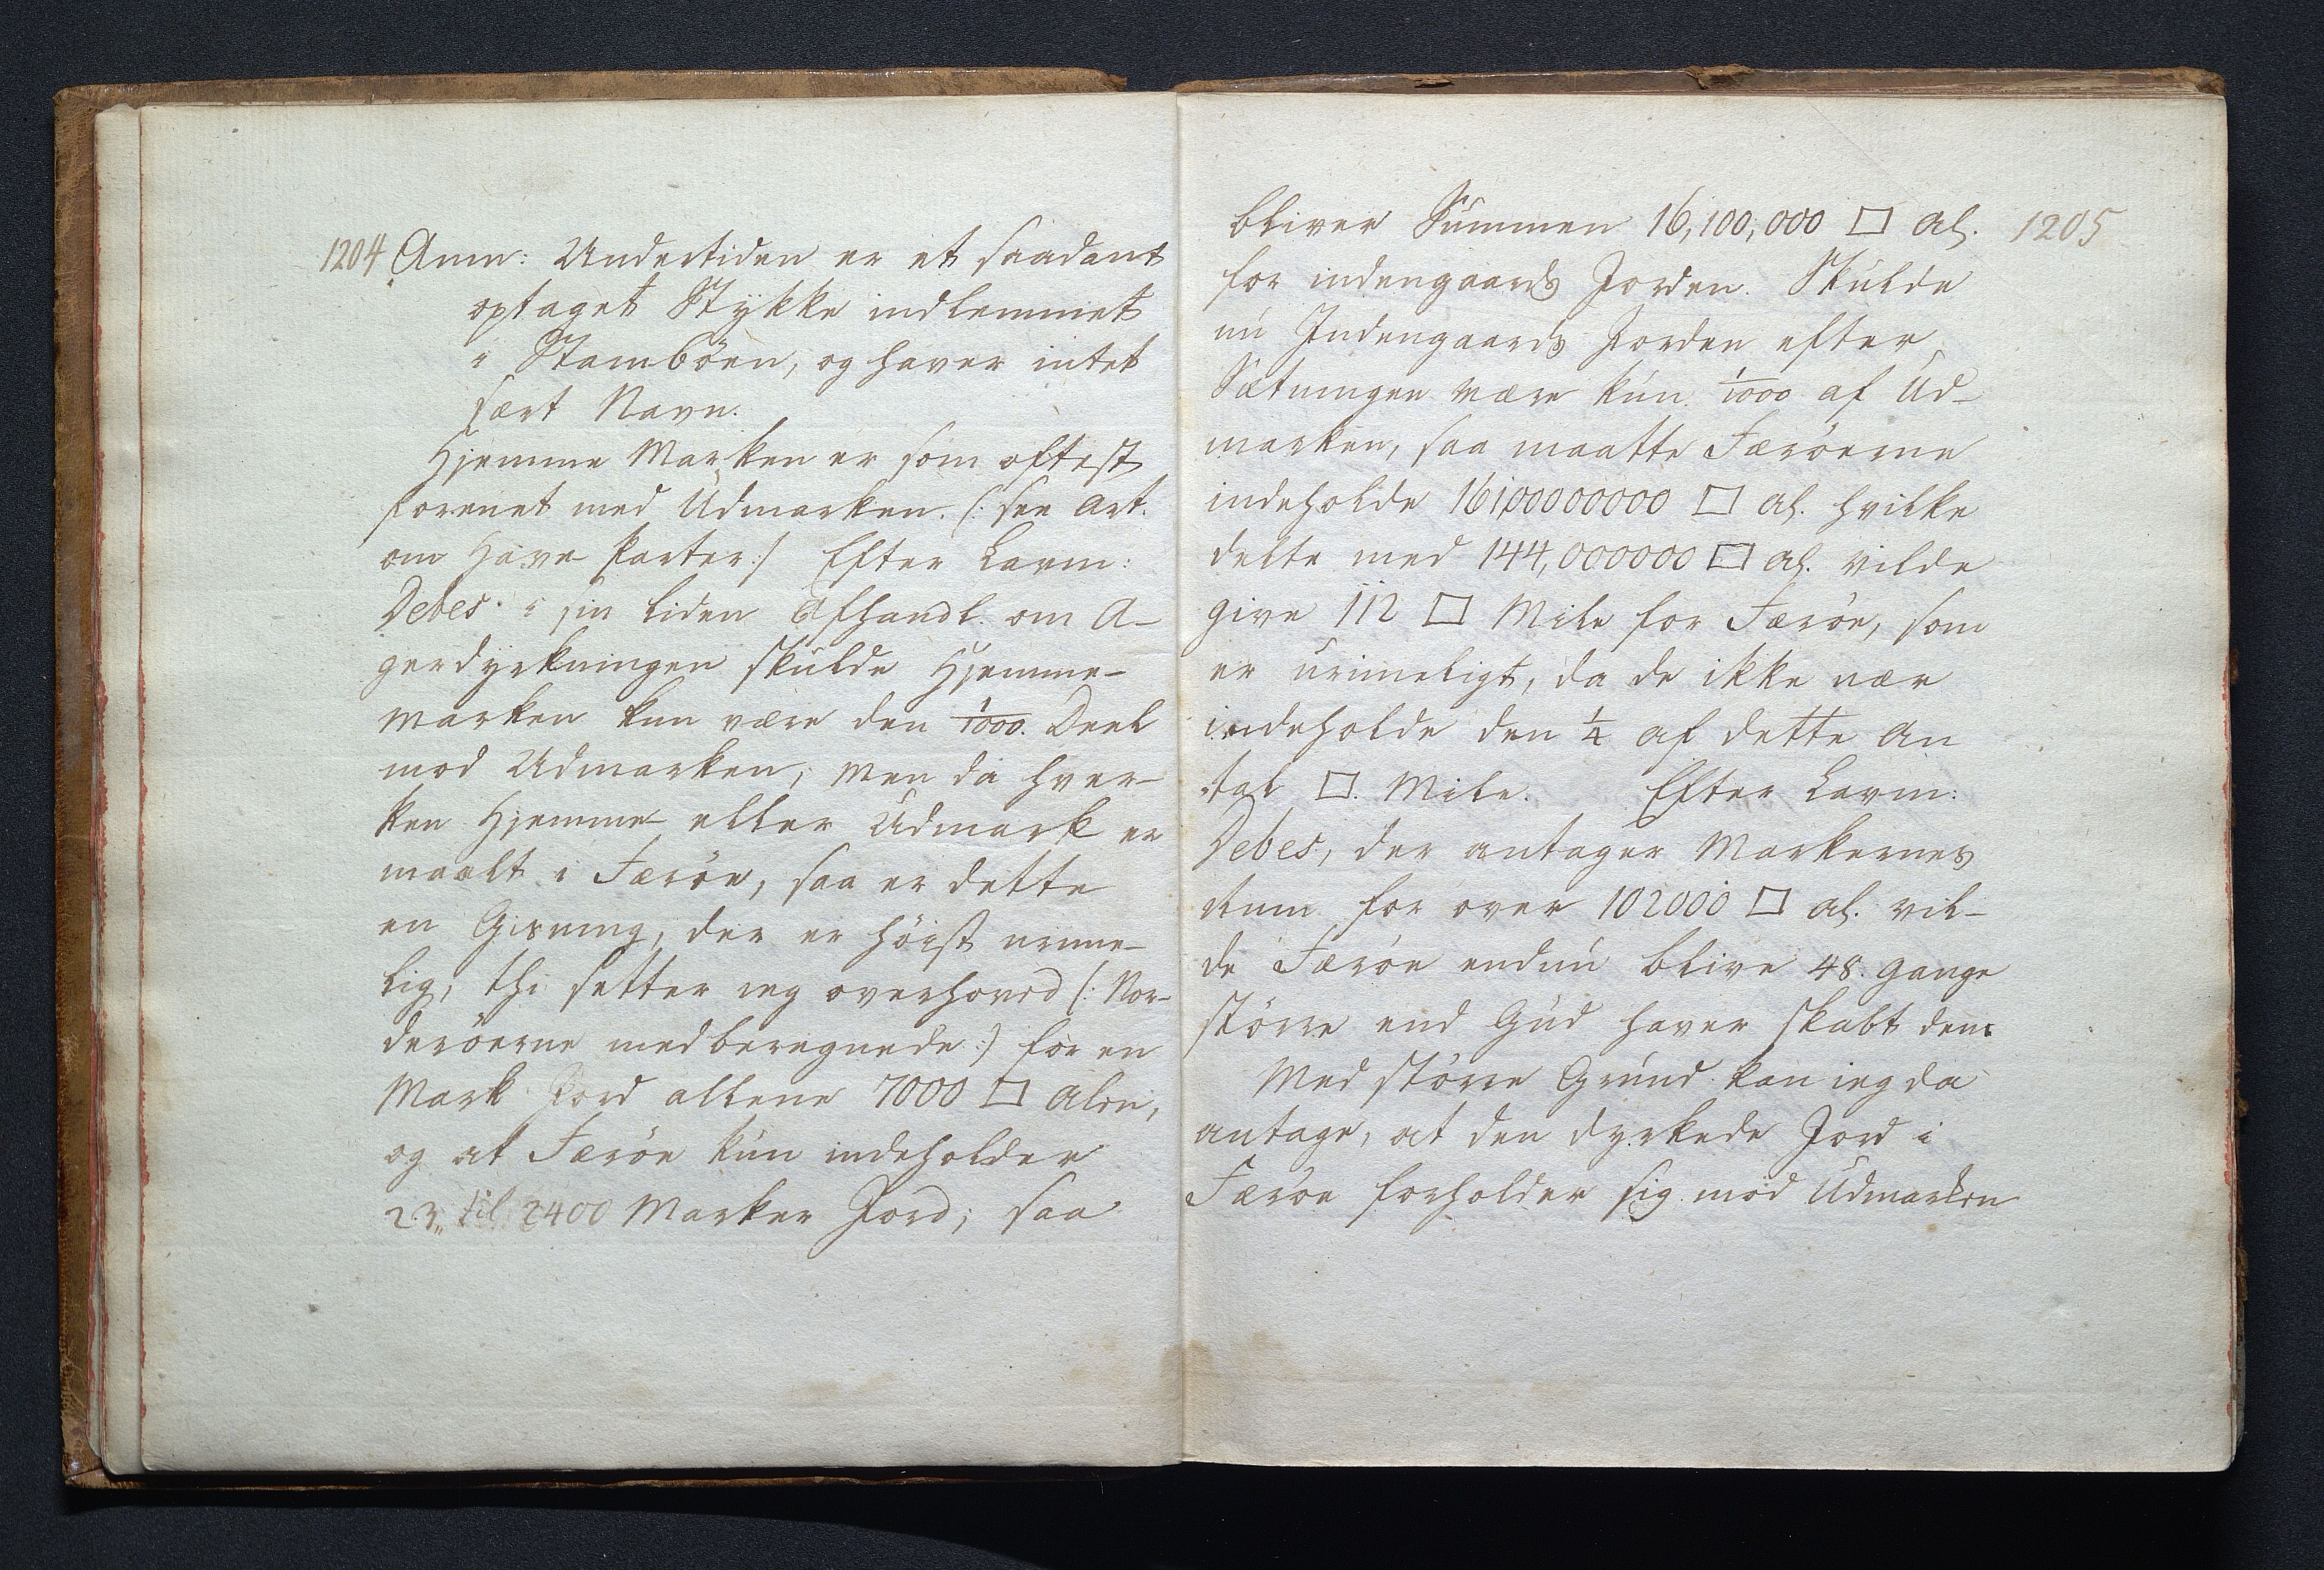 1204 Anm: Undertiden er et saadant
optaget Stykke indlemmet
i Stamböen, og haver intet
sært Navn.
Hjemme Marken er som oftest
forenet med Udmarken. (: see Art.
om Have Parter :/ Efter Lavm:
Debes i sin liden Afhandl. om A-
gerdyrkningen skulde Hjemme-
marken kun være den 1/1000. Deel
mod Udmarken; men da hver-
ken Hjemme- eller Udmark er
maalt i Færöe, saa er dette
en Gisning, der er höist urime-
lig; thi setter ieg overhoved (: Nor-
deröerne medberegnede :) for en
Mark Jord allene 7000 □ Alen,
og at Færöe kun indeholder
23,, til 2400 Marker Jord; saa
bliver Summen 16,100,000 □ Al. 1205
for indengaards Jorden. Skulde
nu Indengaards Jorden efter
Sætningen være kun 1/1000 af Ud-
marken, saa maatte Færöerne
indeholde 16100000000 □ Al. hvilke
delte med 144,000000 □ Al. vilde
give 112 □ Mile for Færöe, som
er urimeligt, da de ikke nær
indeholde den 1/4 af dette An
tal □. Mile. Efter Lavm:
Debes, der antager Markernes
Rum for over 102000 □ Al. vil-
de Færöe endnu blive 48. gange
större end Gud haver skabt dem
Med större Grund kan ieg da
antage, at den dyrkede Jord i
Færöe forholder sig mod Udmarken